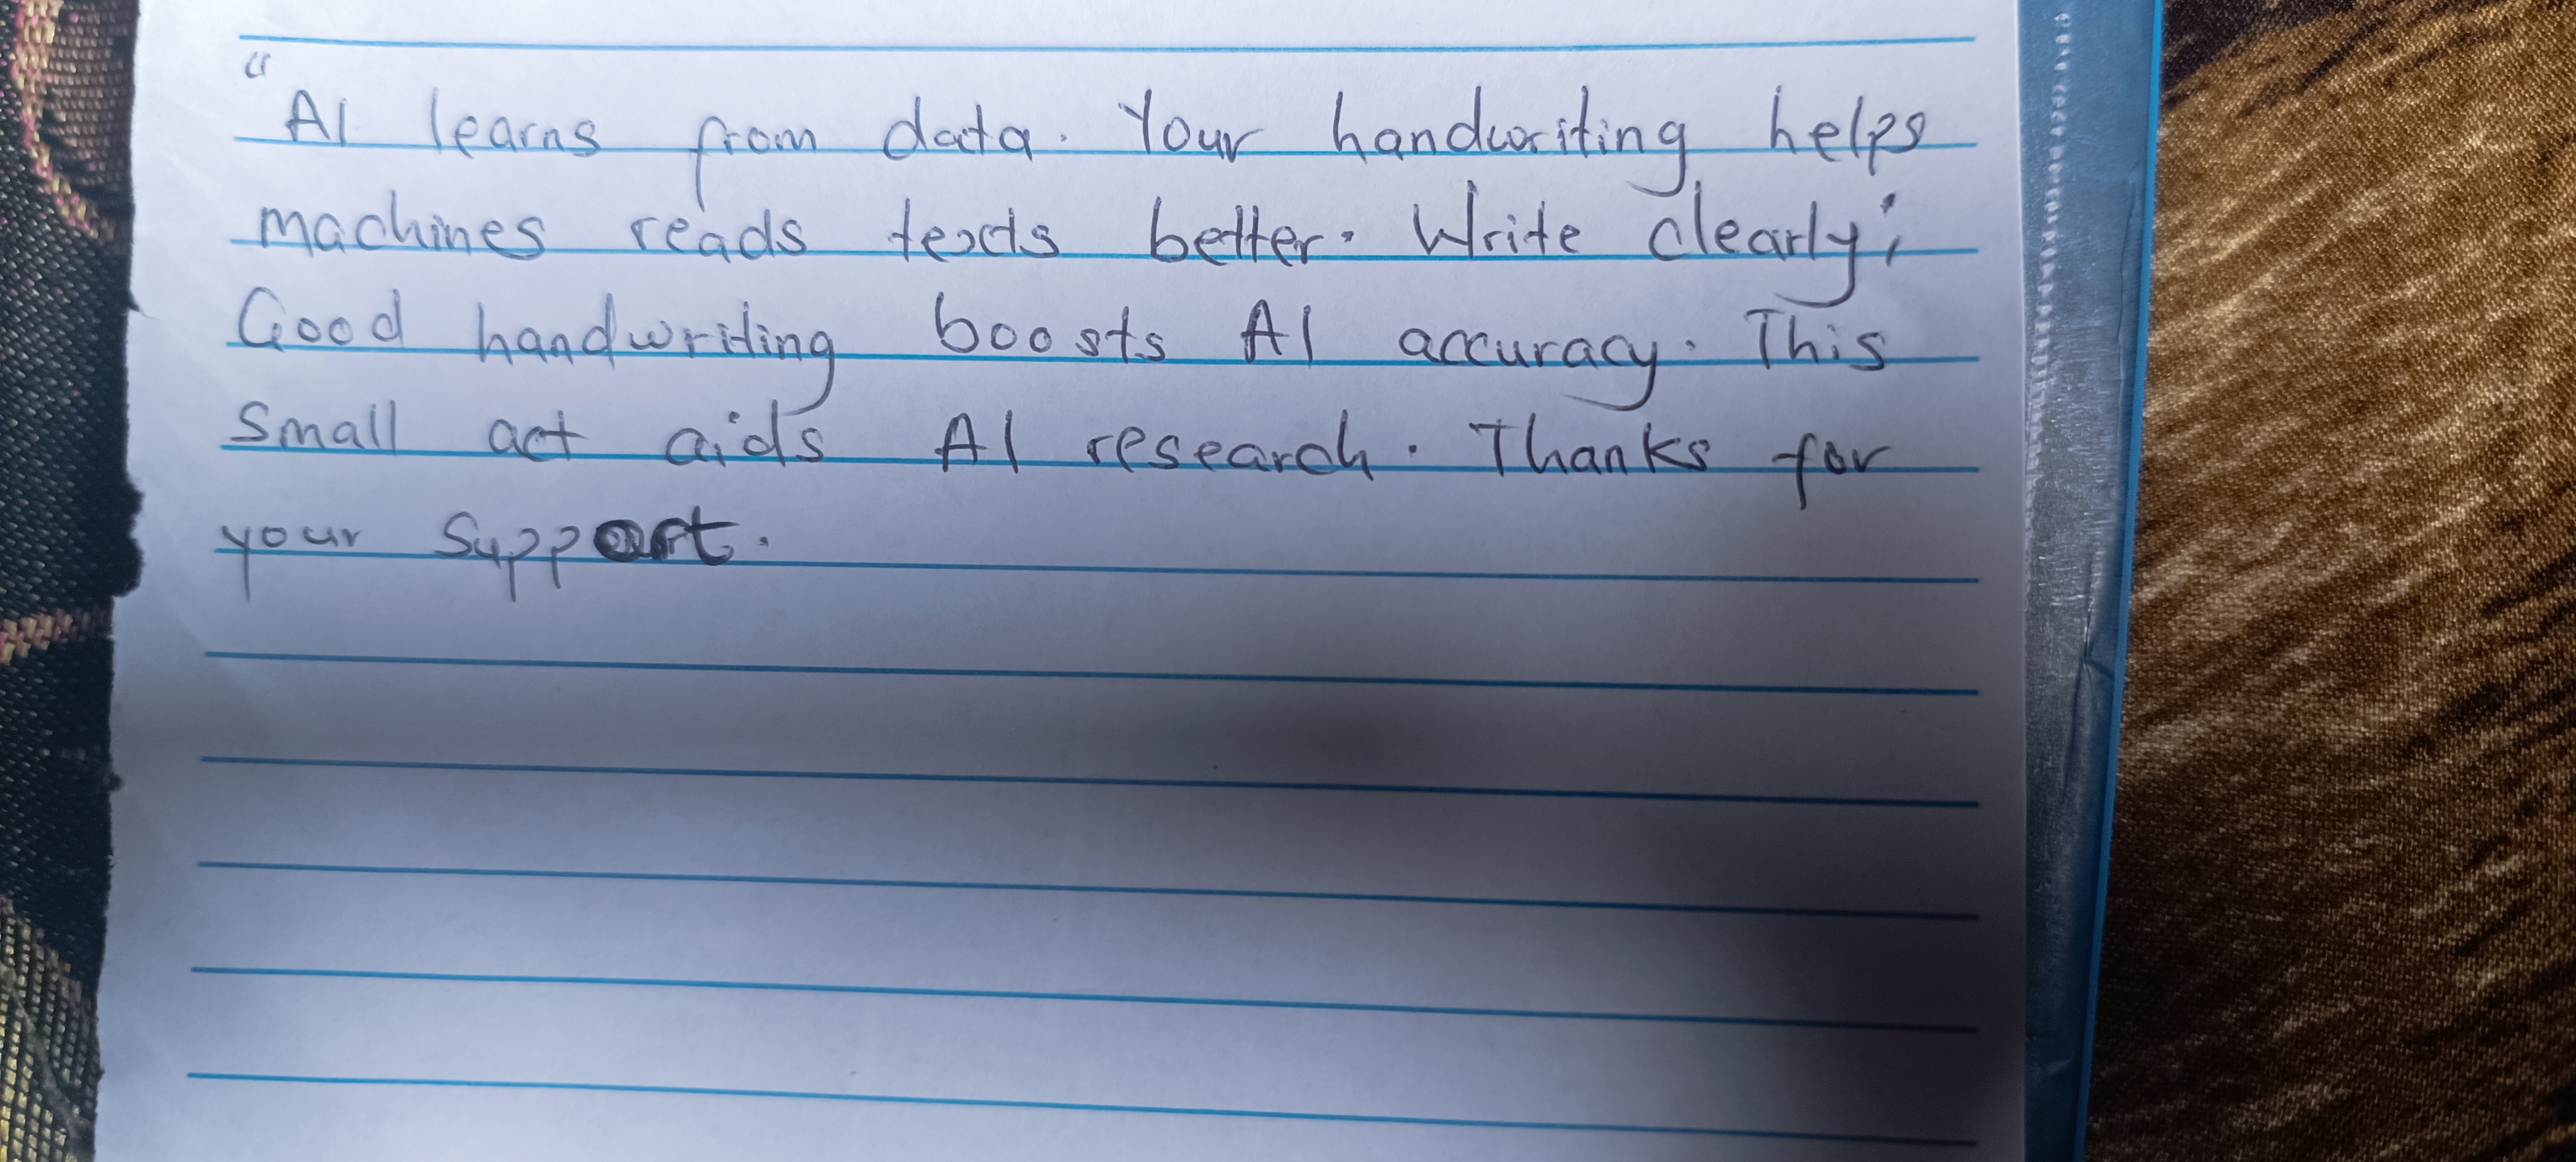 "AI learns from data. Your handwriting helps
machines reads texts better. Write clearly;
Good handwriting boosts AI accuracy. This
small act aids AI research. Thanks for
your support.